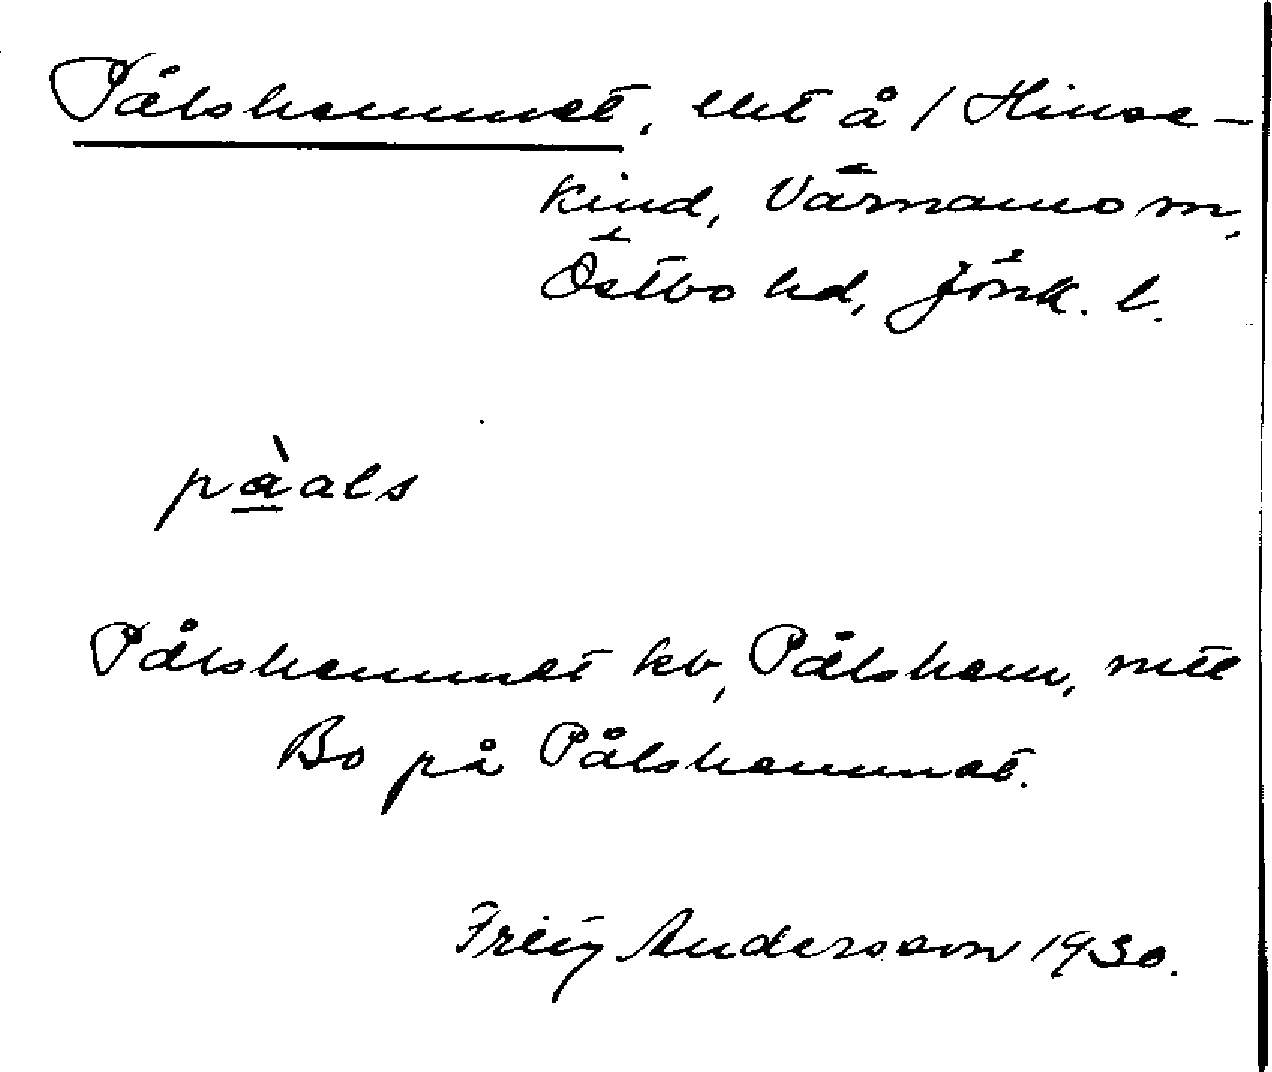 Pålshemmet, lht å 1 Hinse-
kind, Värnamo sn,
Östbo hd, Jönk. l.
pàals
Pålshemmet kb, Pålshem, mtl
Bo på Pålshemmet.
Andersson 1930.